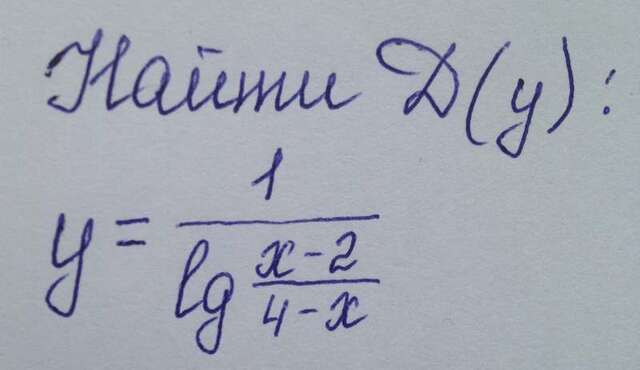 Найти D(y):
y = \frac{1}{lg \frac{x-2}{4-x}}